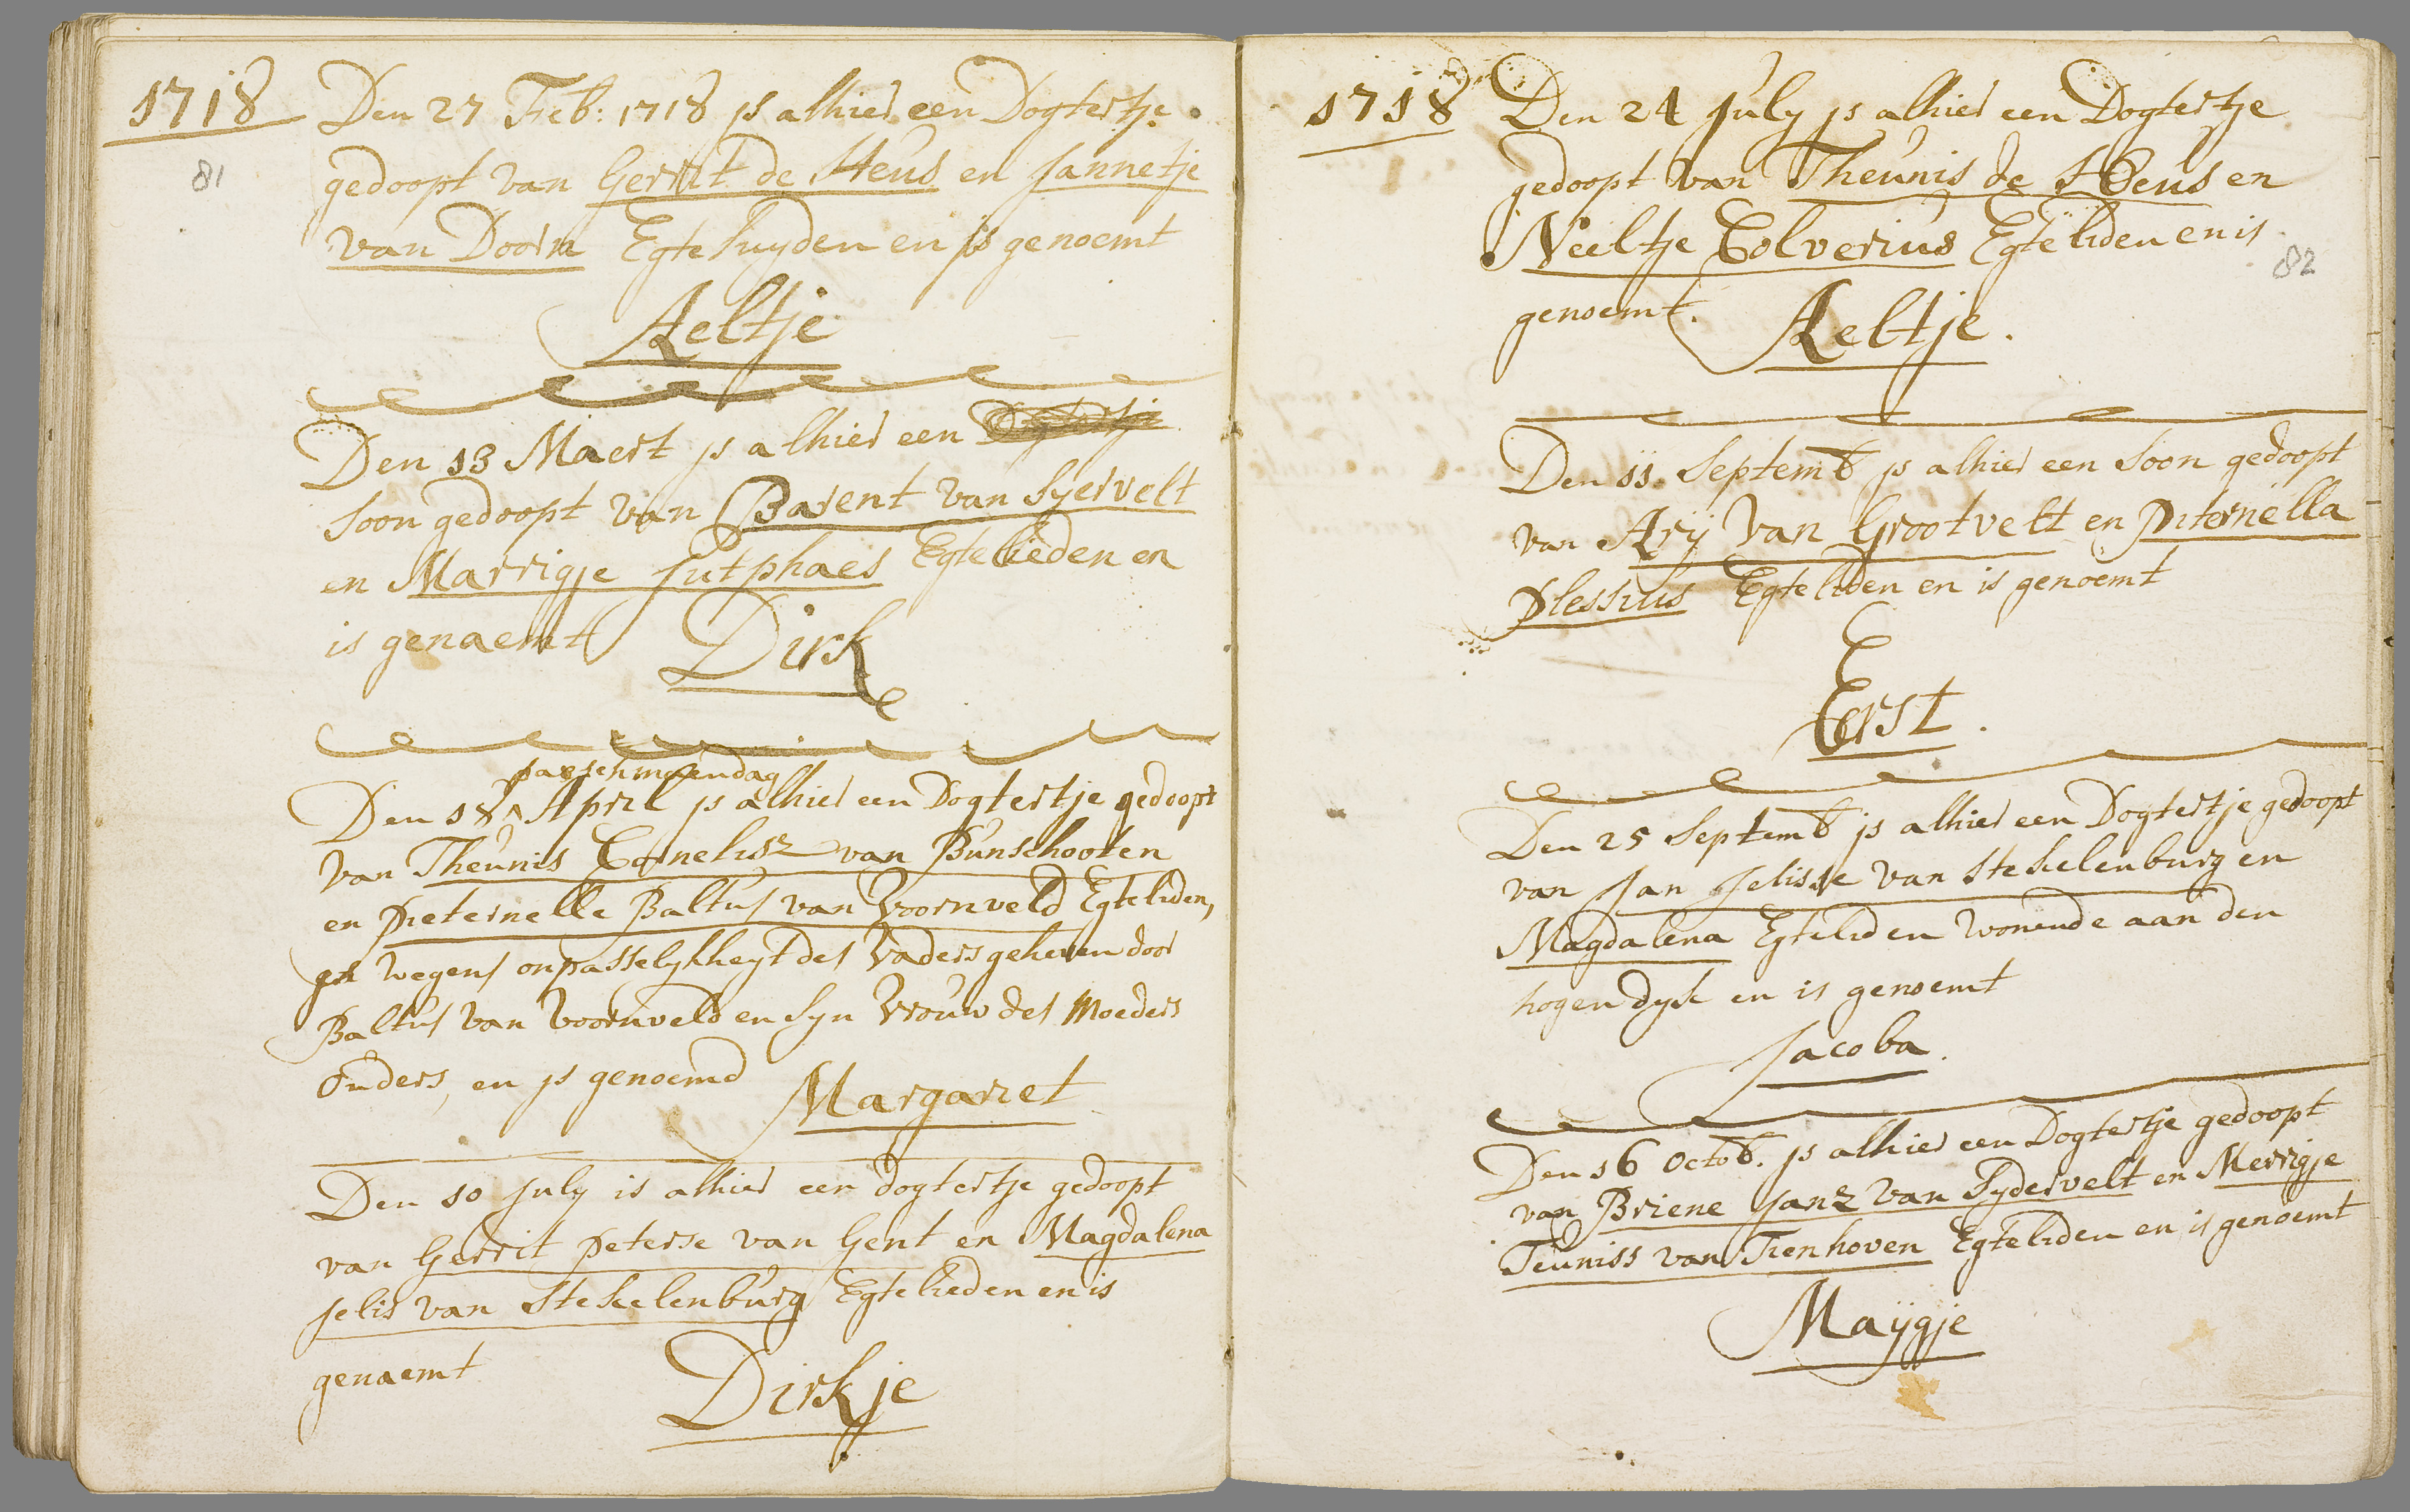 1718
81
Den 27 Feb: 1718 js alhier een Dogtertje
gedoopt van Gerrit de Heus en Jannetje
van Doorn Egte luyden en js genoemt
Aeltje
Den 13 Maert js alhier een Dogtertje
soon gedoopt van Barent van Syervelt
en Marrigje Jutphaes Egtelieden en
is genaemt Dirk
paeschmaendag
Den 18 April js alhier een Dogtertje gedoopt
van Theunis Cornelisz van Bunschooten
en Pieternelle Baltus van Voornveld Egteliden,
en wegens onpasselykheyt des Vaders geheven door
Baltus van Voornveld en Syn Vrouw des Moeders
Ouders, en js genoemd Margariet
Den 10 July is alhier een dogtertje gedoopt
van Gerrit Peterse van Gent en Magdalena
Jelis van Stekelenburg Egtelieden en is
genaemt Dirkje
1718
82
Den 24 July js alhier een Dogtertje
gedoopt van Theunis de Heus en
Neeltje Colverius Egteliden en is
genoemt. Aeltje.
Den 11. Septemb js alhier een Soon gedoopt
van Arij van Grootvelt en Piternella
Plessius Egteliden en is genoemt
Erst.
Den 25 Septemb js alhier een Dogtertje gedoopt
van Jan Jelisse van Stekelenburg en
Magdalena Egteliden wonende aan den
hogen dyk en is genoemt
Jacoba.
Den 16 Octob. js alhier een Dogtertje gedoopt
van Briene Janz van Sydervelt en Merrigje
Teuniss van Tienhoven Egteliden en is genoemt
Maÿgje